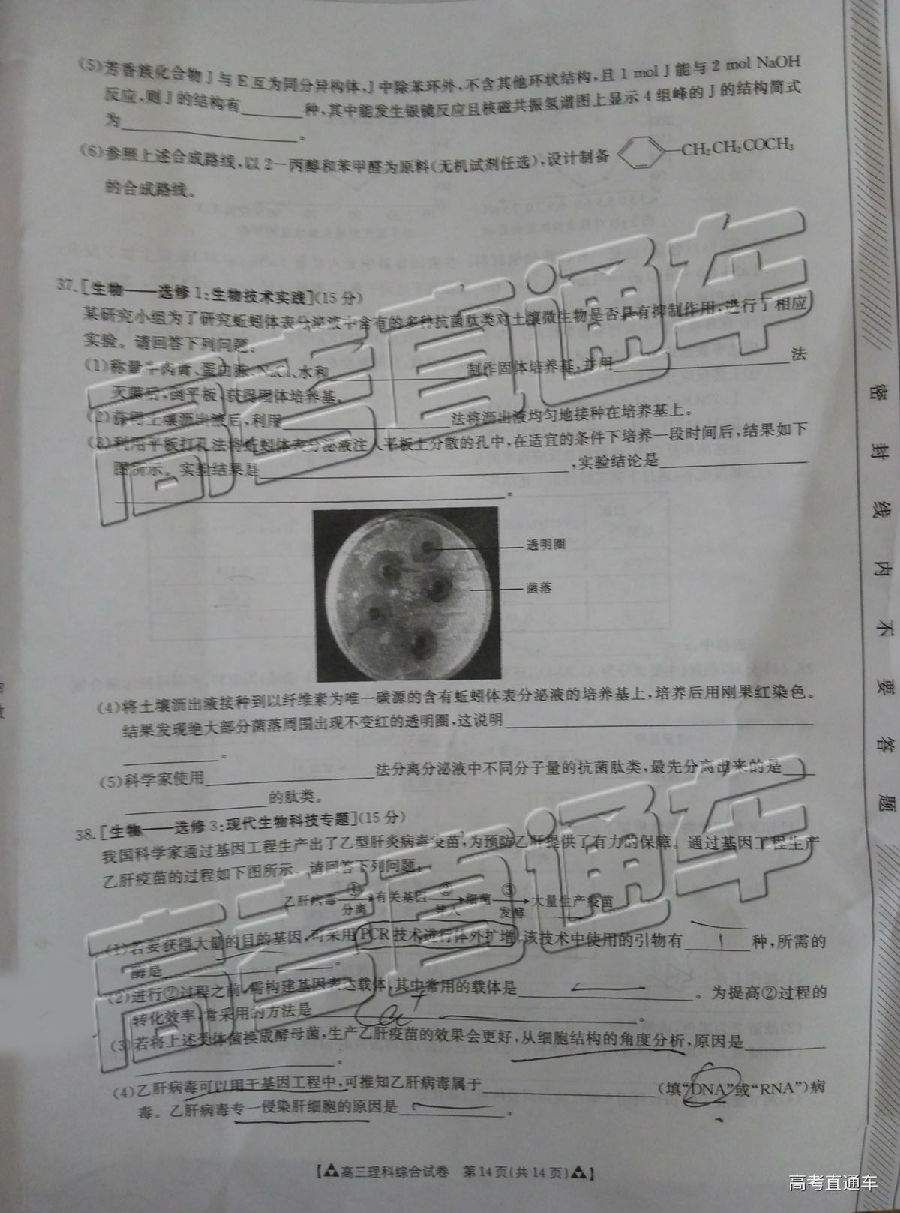 (5)芳香族化合物J与E互为同分异构体,J中除苯环外,不含其他环状结构,且1 mol J能与2 mol NaOH
反应,则J的结构有 种,其中能发生银镜反应且核磁共振氢谱图上显示4组峰的J的结构简式
为 。
(6)参照上述合成路线,以2-丙醇和苯甲醛为原料(无机试剂任选),设计制备 CH₂CH₂COCH₃
的合成路线。
37.[生物——选修1:生物技术实践](15分)
某研究小组为了研究蚯蚓体表分泌液中含有的多种抗菌肽类对土壤微生物是否具有抑制作用,进行了相应
实验。请回答下列问题:
(1)称量牛肉膏、蛋白胨、NaCl、水和 制作固体培养基,并用 法
灭菌后,倒平板,获得固体培养基。
(2)获得土壤沥出液后,利用 法将沥出液均匀地接种在培养基上。
(3)利用平板打孔法将蚯蚓体表分泌液注入平板上分散的孔中,在适宜的条件下培养一段时间后,结果如下
图所示。实验结果是 ,实验结论是
。
透明圈
菌落
(4)将土壤沥出液接种到以纤维素为唯一碳源的含有蚯蚓体表分泌液的培养基上,培养后用刚果红染色。
结果发现绝大部分菌落周围出现不变红的透明圈,这说明
。
(5)科学家使用 法分离分泌液中不同分子量的抗菌肽类,最先分离出来的是
的肽类。
38.[生物——选修3:现代生物科技专题](15分)
我国科学家通过基因工程生产出了乙型肝炎病毒疫苗,为预防乙肝提供了有力的保障。通过基因工程生产
乙肝疫苗的过程如下图所示。请回答下列问题:
乙肝病毒 ① 分离 有关基因 ② 导入 细菌 ③ 发酵 大量生产疫苗
(1)若要获得大量的目的基因,可采用PCR技术进行体外扩增,该技术中使用的引物有 种,所需的
酶是 。
(2)进行②过程之前,需构建基因表达载体,其中常用的载体是 。为提高②过程的
转化效率,常采用的方法是 。
(3)若将上述受体菌换成酵母菌,生产乙肝疫苗的效果会更好,从细胞结构的角度分析,原因是
。
(4)乙肝病毒可以用于基因工程中,可推知乙肝病毒属于 (填“DNA”或“RNA”)病
毒。乙肝病毒专一侵染肝细胞的原因是 。
【高三理科综合试卷 第14页(共14页)】
密封线内不要答题
高考直通车
高考直通车
高考直通车